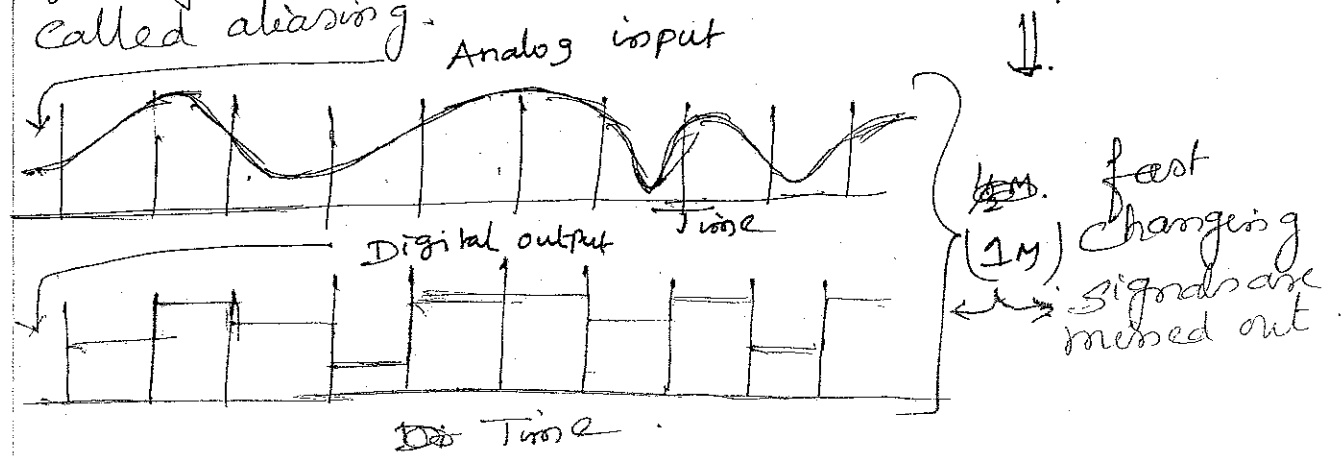 called aliasing.
Analog input
Time
Digital output
Time
(1M)
fast
changing
signals are
missed out.